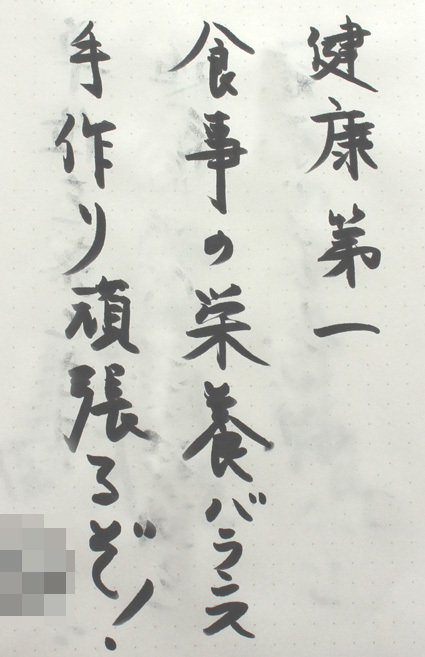 健康第一
食事の栄養バランス
手作り頑張るぞ!